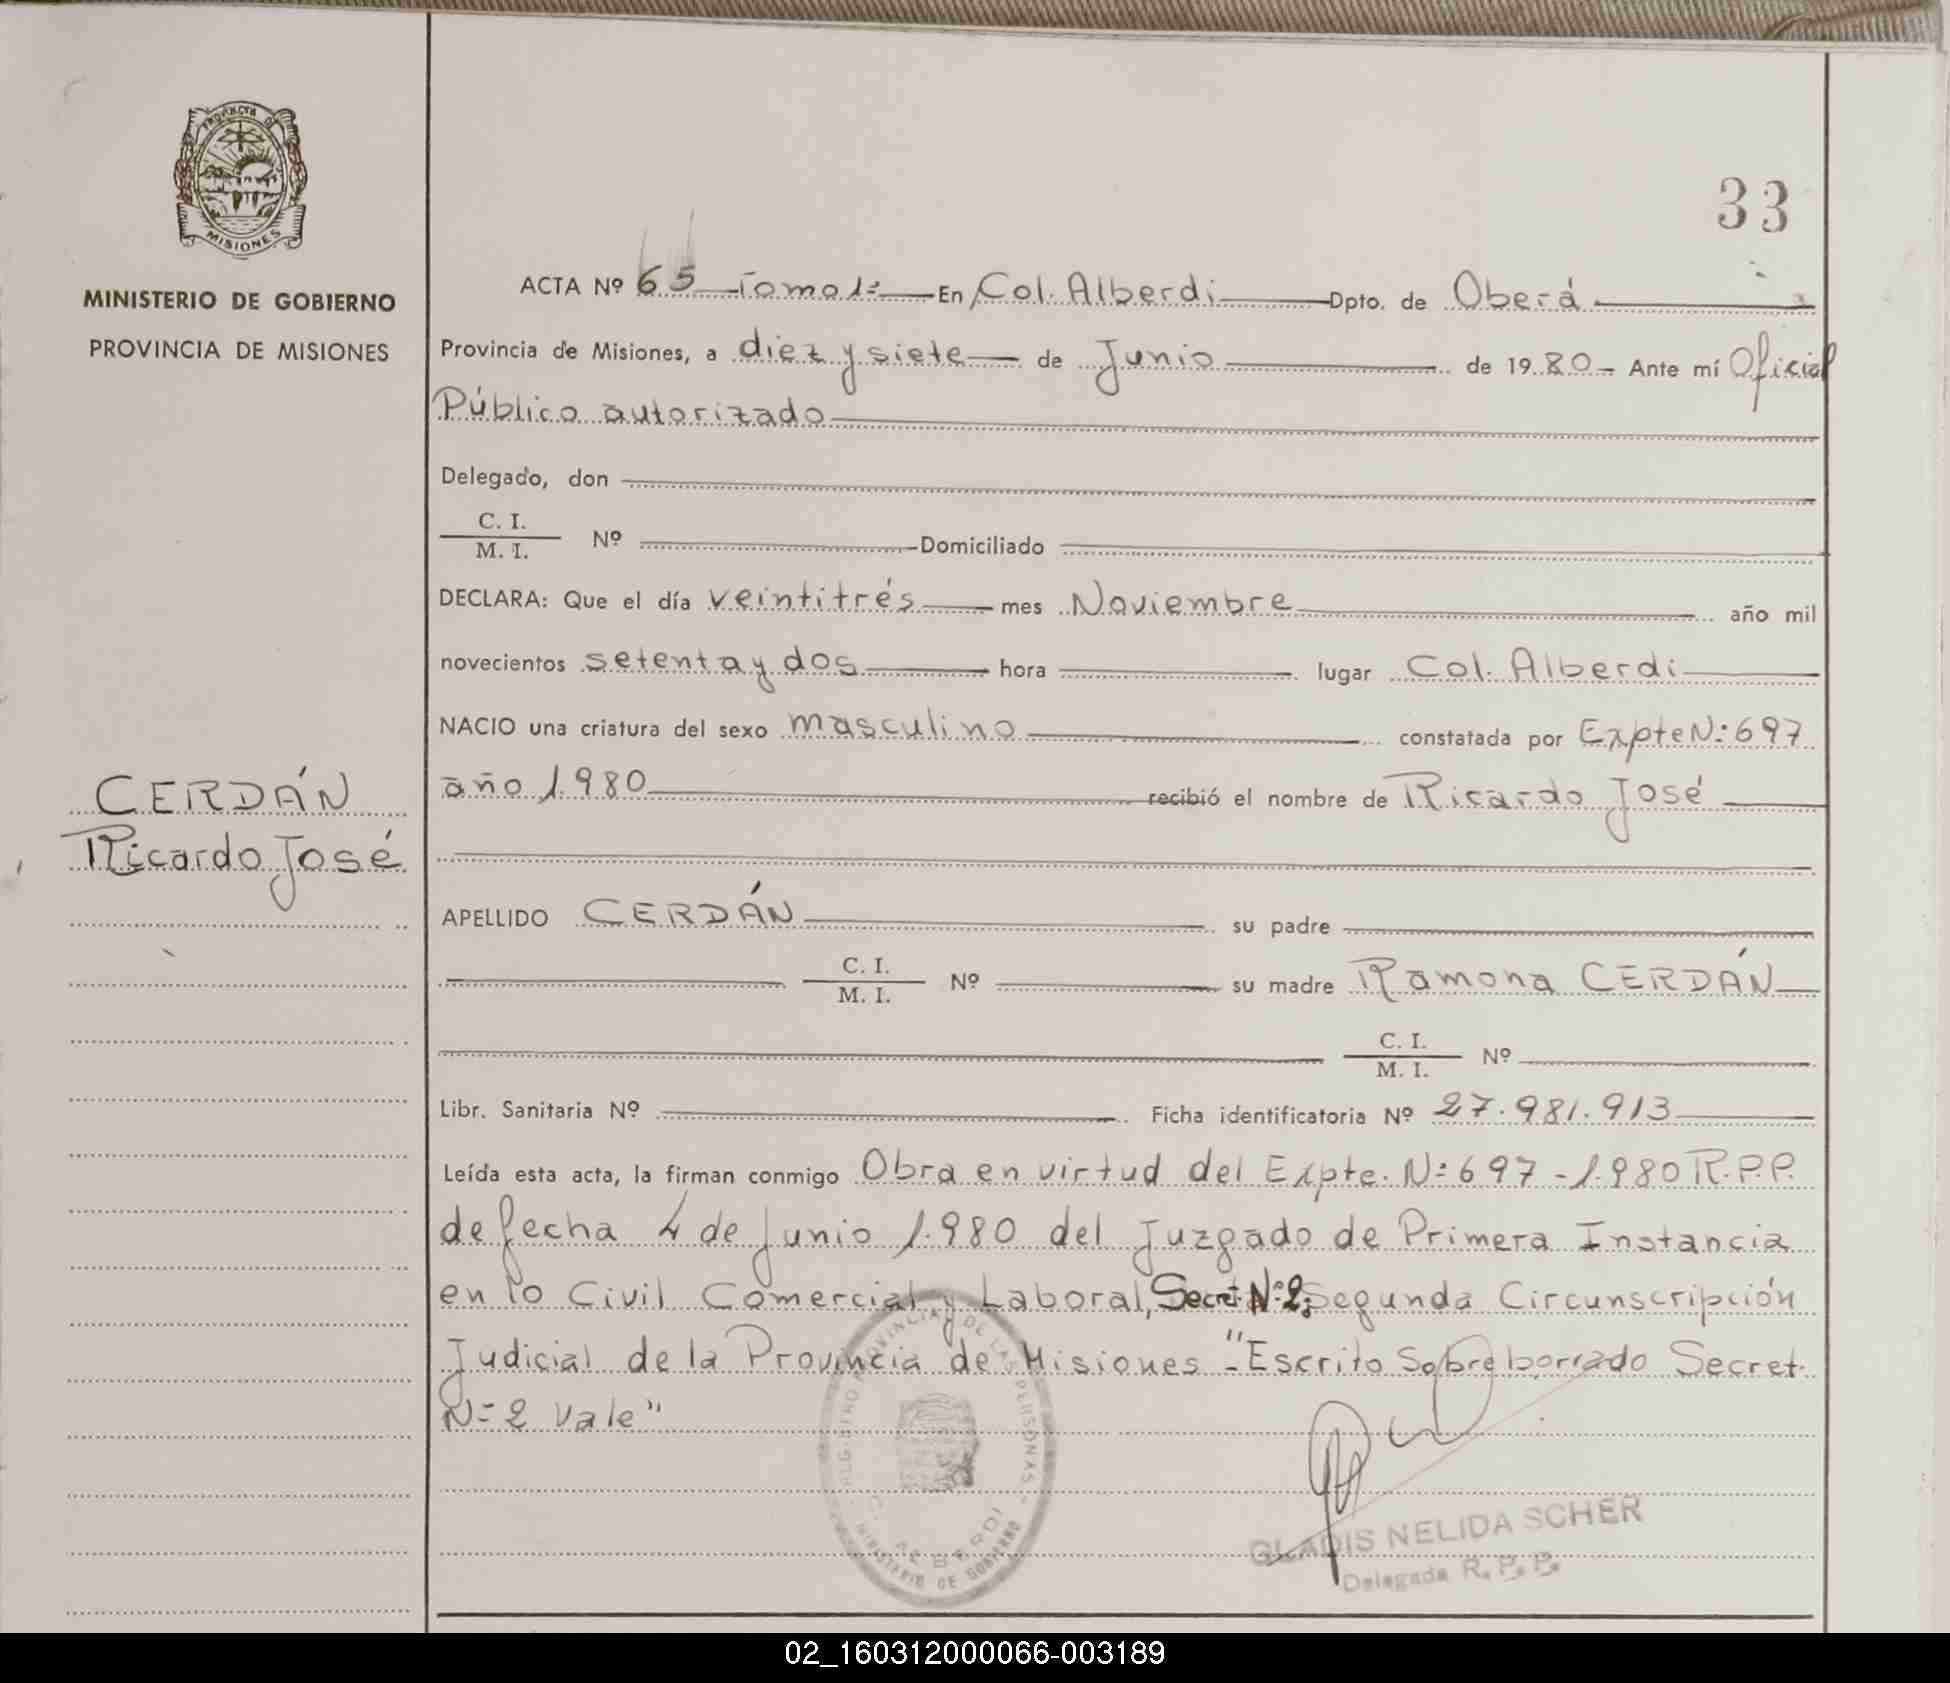 PROVINCIA DE
MISIONES
MINISTERIO DE GOBIERNO
PROVINCIA DE MISIONES
CERDÁN
Ricardo José
33
ACTA Nº 65 Tomo 1º En Col. Alberdi Dpto. de Oberá
Provincia de Misiones, a diez y siete de Junio de 1980 - Ante mí Oficial
Público autorizado
Delegado, don
C. I.
M. I. Nº Domiciliado
DECLARA: Que el día veintitrés mes Noviembre año mil
novecientos setenta y dos hora lugar Col. Alberdi
NACIO una criatura del sexo masculino constatada por Expte Nº 697
año 1.980 recibió el nombre de Ricardo José
APELLIDO CERDÁN su padre
C. I.
M. I. Nº su madre Ramona CERDÁN
C. I.
M. I. Nº
Libr. Sanitaria Nº Ficha identificatoria Nº 27.981.913
Leída esta acta, la firman conmigo Obra en virtud del Expte. Nº 697 - 1.980 R.P.P.
de fecha 4 de Junio 1.980 del Juzgado de Primera Instancia
en lo Civil Comercial y Laboral, Secret. Nº 2; Segunda Circunscripción
Judicial de la Provincia de Misiones - "Escrito Sobreborrado Secret.
Nº 2 Vale"
PROVINCIAL DE LAS PERSONAS
C. ALBERDI
MINISTERIO DE GOBIERNO
GLADIS NELIDA SCHER
Delegada R. P. P.
02_160312000066-003189